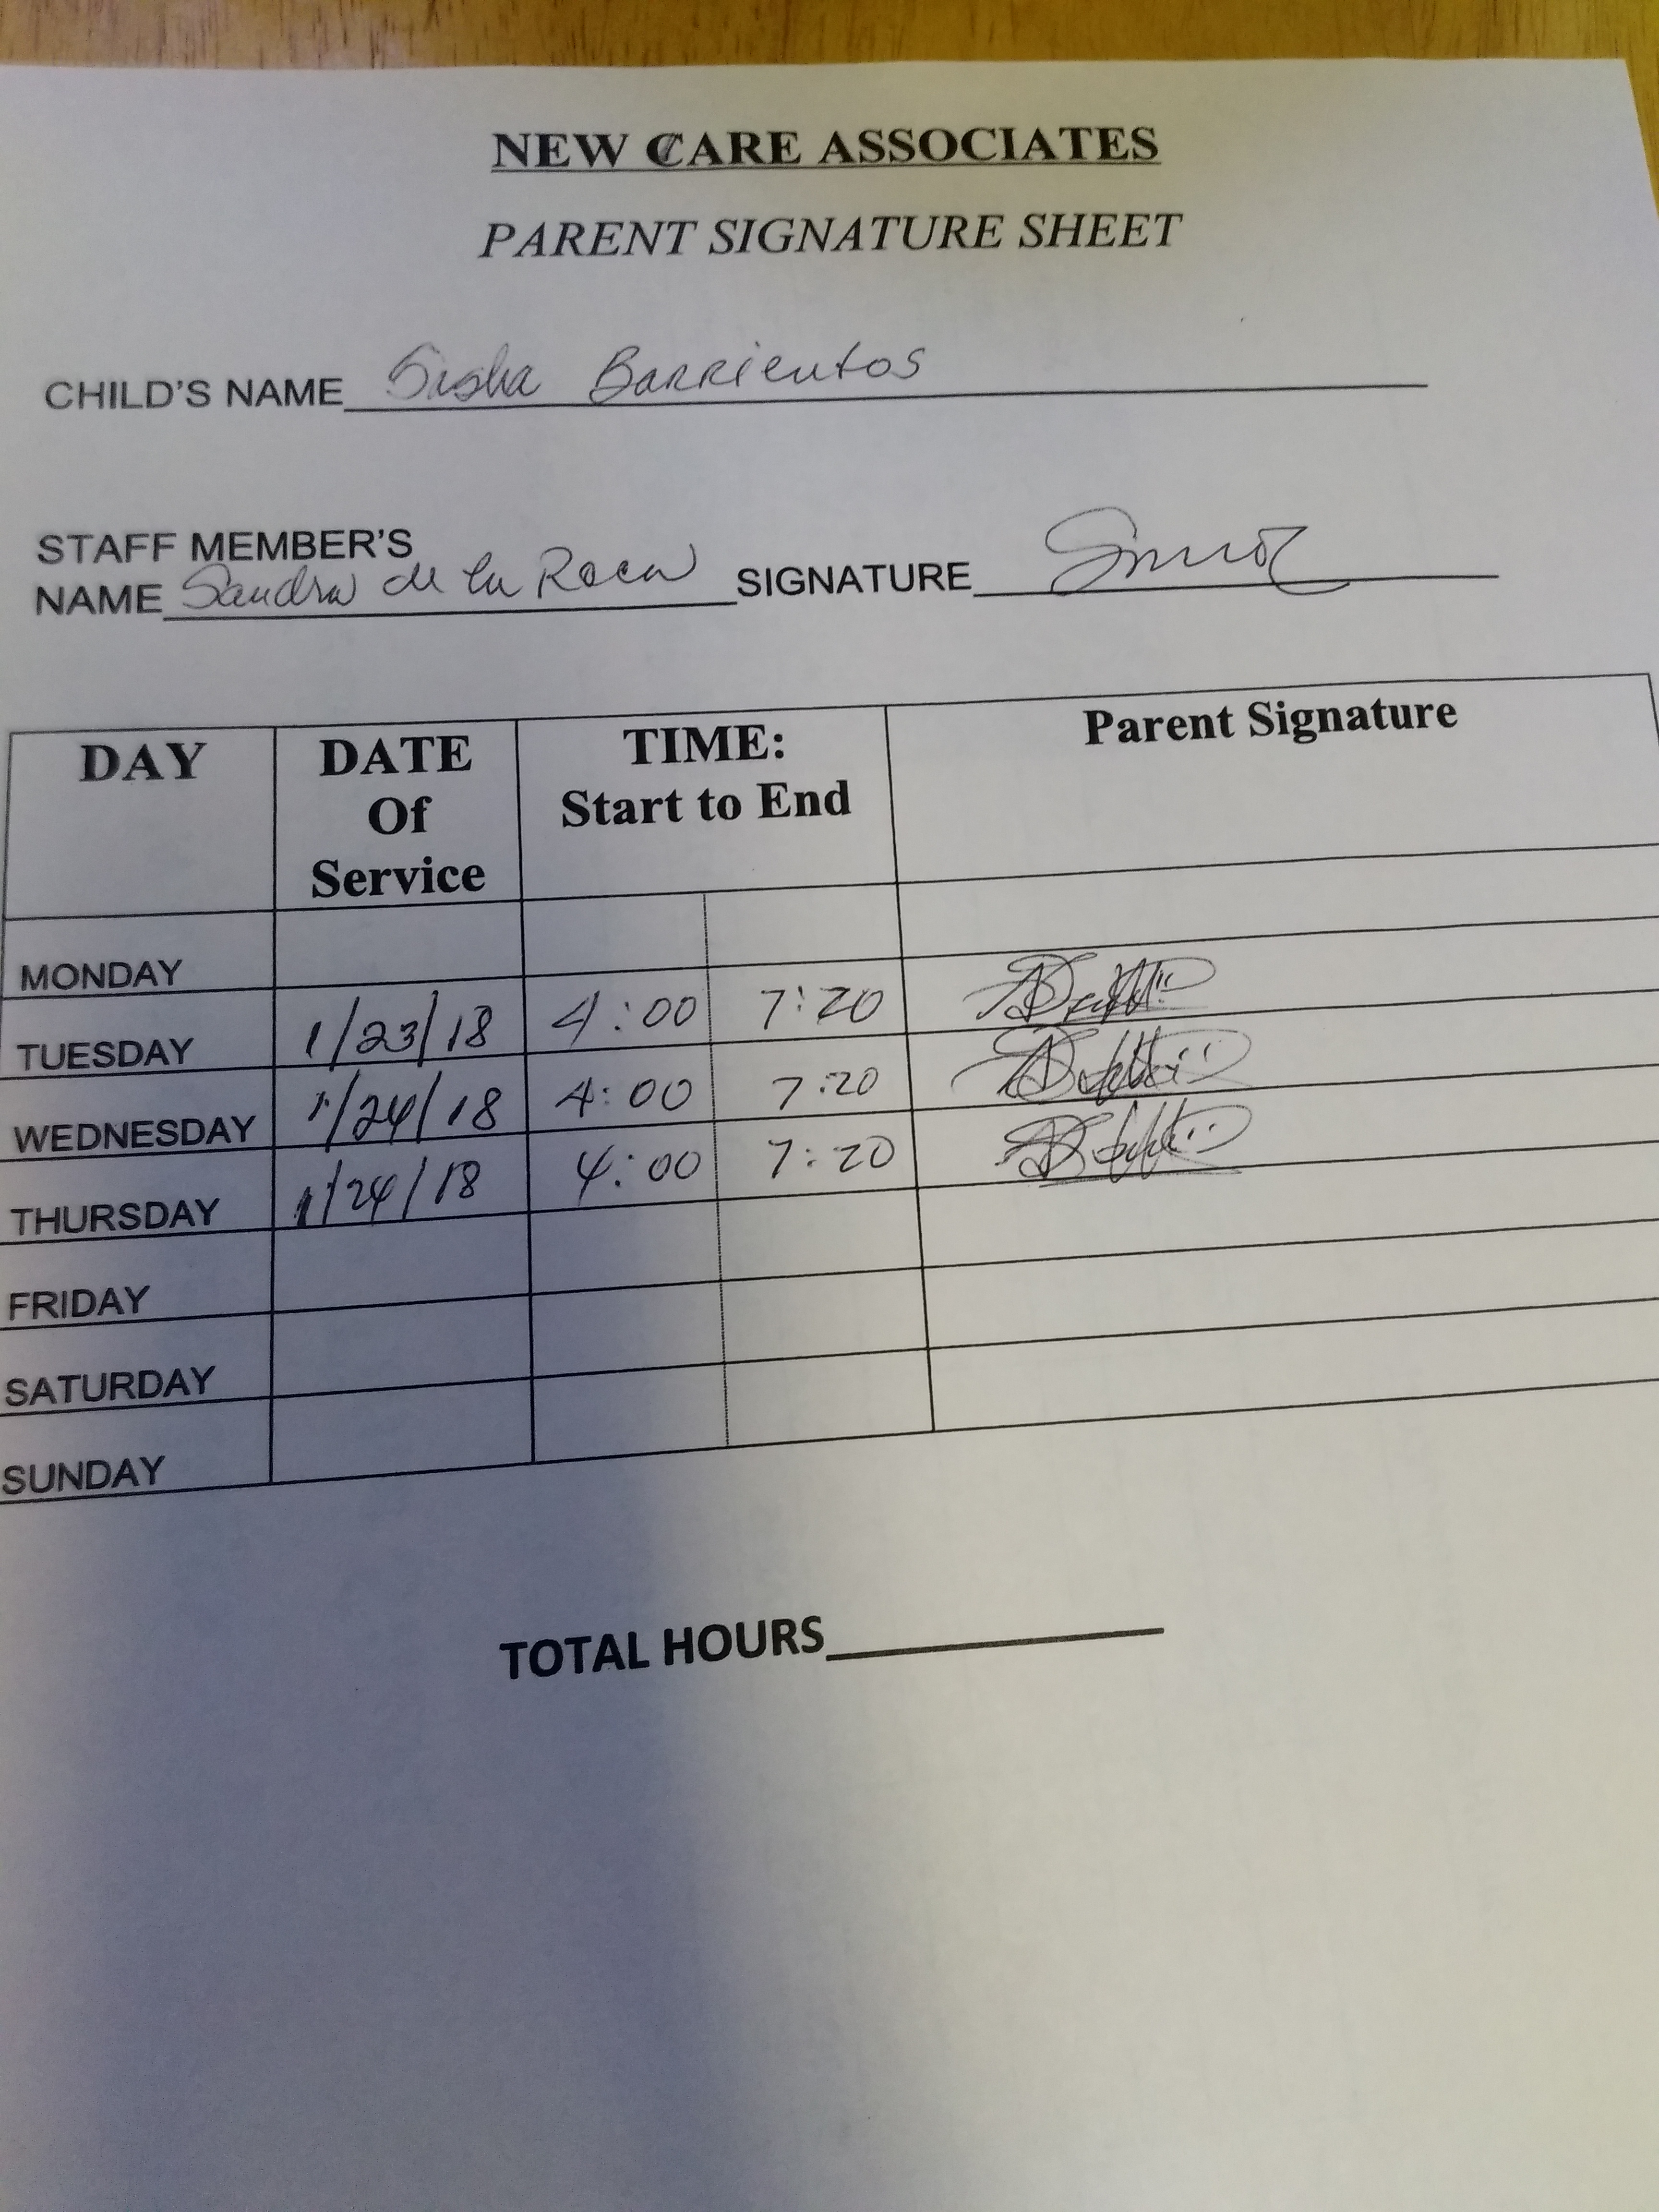 NEW CARE ASSOCIATES
PARENT SIGNATURE SHEET
CHILD'S NAME Barrientos
STAFF MEMBER'S
NAME Sandra de la Roca SIGNATURE
DAY DATE Of Service TIME: Start to End Parent Signature
MONDAY
TUESDAY 1/23/18 4:00 7:20
WEDNESDAY 1/24/18 4:00 7:20
THURSDAY 1/24/18 4:00 7:20
FRIDAY
SATURDAY
SUNDAY
TOTAL HOURS